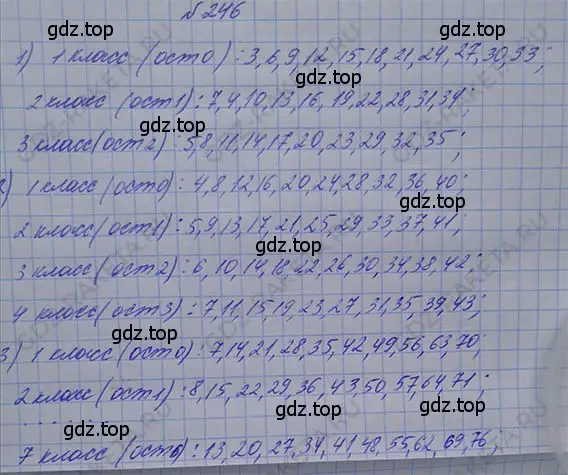 №246
1) 1 класс (ост 0) : 3,6,9,12,15,18,21,24,27,30,33;
2 класс (ост 1) : 7,4,10,13,16, 19,22,28,31,34;
3 класс (ост 2) : 5,8,11,14,17,20,23,29,32,35;
2) 1 класс (ост 0) : 4,8,12,16,20,24,28,32,36,40;
2 класс (ост 1) : 5,9,13,17,21,25,29,33,37,41;
3 класс (ост 2) : 6,10,14,18,22,26,30,34,38,42;
4 класс (ост 3) : 7,11,15,19,23,27,31,35,39,43;
3) 1 класс (ост 0) : 7,14,21,28,35,42,49,56,63,70;
2 класс (ост 1) : 8,15,22,29,36,43,50,57,64,71;
....
7 класс (ост 6) : 13,20,27,34,41,48,55,62,69,76;
gdz.top
gdz.top
gdz.top
gdz.top
gdz.top
gdz.top
gdz.top
gdz.top
gdz.top
gdz.top